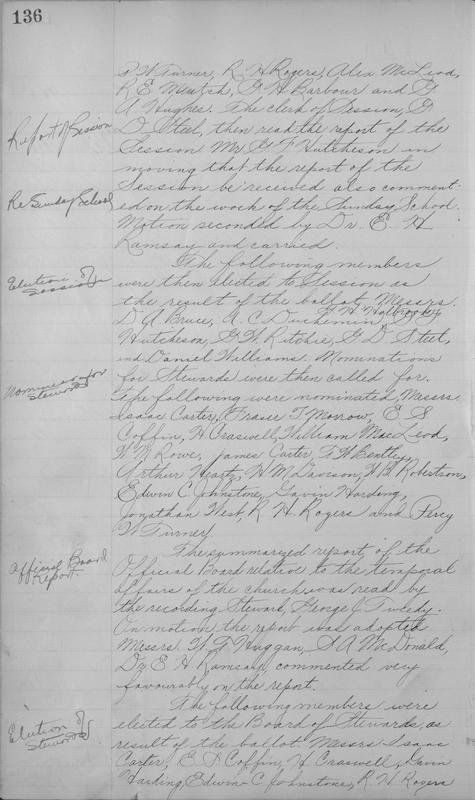 136
P W Turner, R H Rogers, Alex McLeod,
R E Mutch, G H Barbour and G
A Hughes. The clerk of Session, G
Report of Session
D Steel, then read the report of the
Session Mr G F Hutcheson in
moving that the report of the
Re Sunday School
Session be received also comment-
ed on the work of the Sunday School.
Motion seconded by Dr. E. H
Ramsay and carried.
The following members
Election of
Session
were then elected to Session as
the result of the ballot, Messrs.
H. Holbrook
D. A. Bruce, A. C. Duchemin, G F
Hutcheson, G. W. Ritchie, G D Steel,
and Daniel Williams. Nominations
Nominees for
Stewards
for Stewards were then called for.
The following were nominated Messrs
Isaac Carter, Fraser T. Morrow, E. S
Coffin, H. Craswell, William MacLeod,
W. W. Rowe, James Carter, F. W Bentley,
Arthur Heartz, H M Davison, W B Robertson,
Edwin C Johnstone, Gavin Harding,
Jonathan West, R H. Rogers and Percy
W Turner
Official Board
Report
The summarized report of the
Official Board relative to the temporal
affairs of the church, was read by
the recording Steward, George J Tweedy.
On motion the report was adopted
Messrs. W. F Huggan, S A McDonald,
Dr E. H Ramsay, commented very
favourably on the report.
The following members were
Election of
Stewards
elected to the Board of Stewards, as
result of the ballot. Messrs Isaac
Carter, E. S Coffin, H. Craswell, Gavin
Harding, Edwin C Johnstone, R. H Rogers